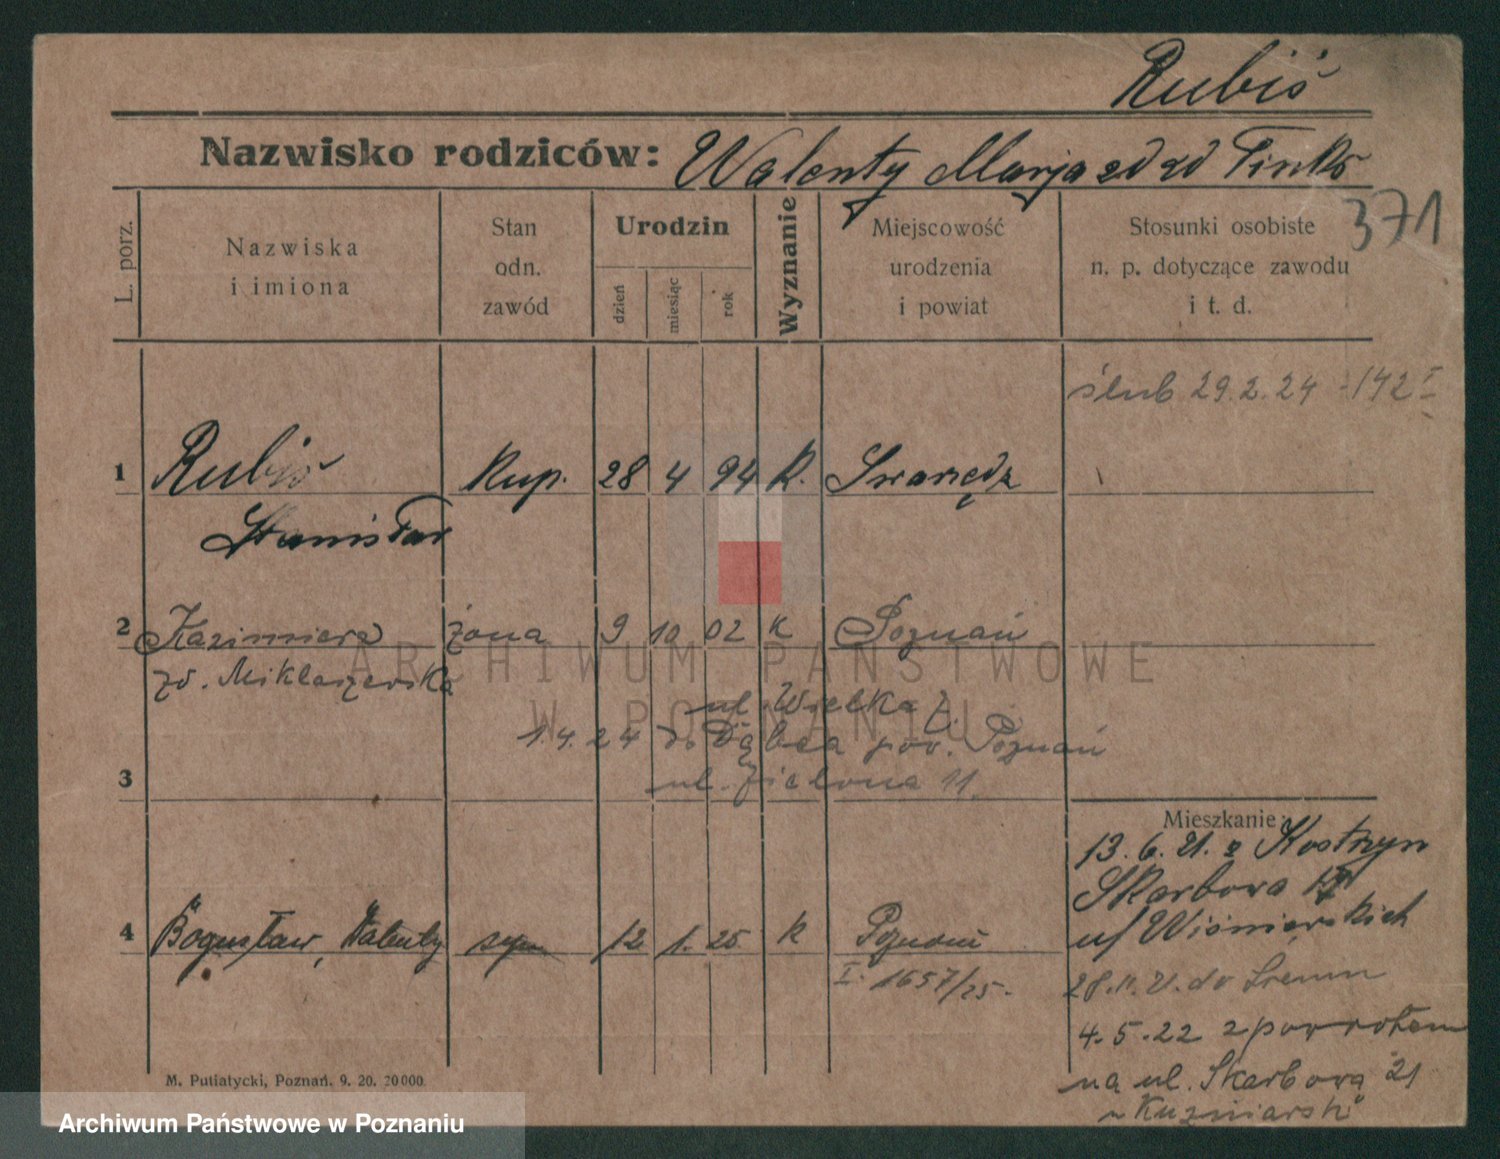 Rubiś
Nazwisko rodziców: Walenty Marja
371
L. porz.
Nazwiska
i imiona
Stan
odn.
zawód
Urodzin
dzień
miesiąc
rok
Wyznanie
Miejscowość
urodzenia
i powiat
Stosunki osobiste
n. p. dotyczące zawodu
i t. d.
ślub 29.2.24 - 142 I
1 Rubiś kup. 28 4 94 K. Swarzędz
Stanisław
2 Kazimiera żona 9 10 02 K Poznań
zd. Miklaszewska
ul. Wielka 7.
1.4.24 do Dąbca pow. Poznań
ul. Zielona 11
3
Mieszkanie:
13.6.21. z Kostrzyn
Skarbowa
u/ Wiśniewskich
4 Bogusław, Walenty syn 12 1. 25 k Poznań
I. 1657/25.
28.11.21. do Śremu
4.5.22 z powrotem
na ul. Skarbową 21
u Kuzniarski
M. Putiatycki, Poznań. 9. 20. 20 000.
ARCHIWUM PAŃSTWOWE
W POZNANIU
Archiwum Państwowe w Poznaniu